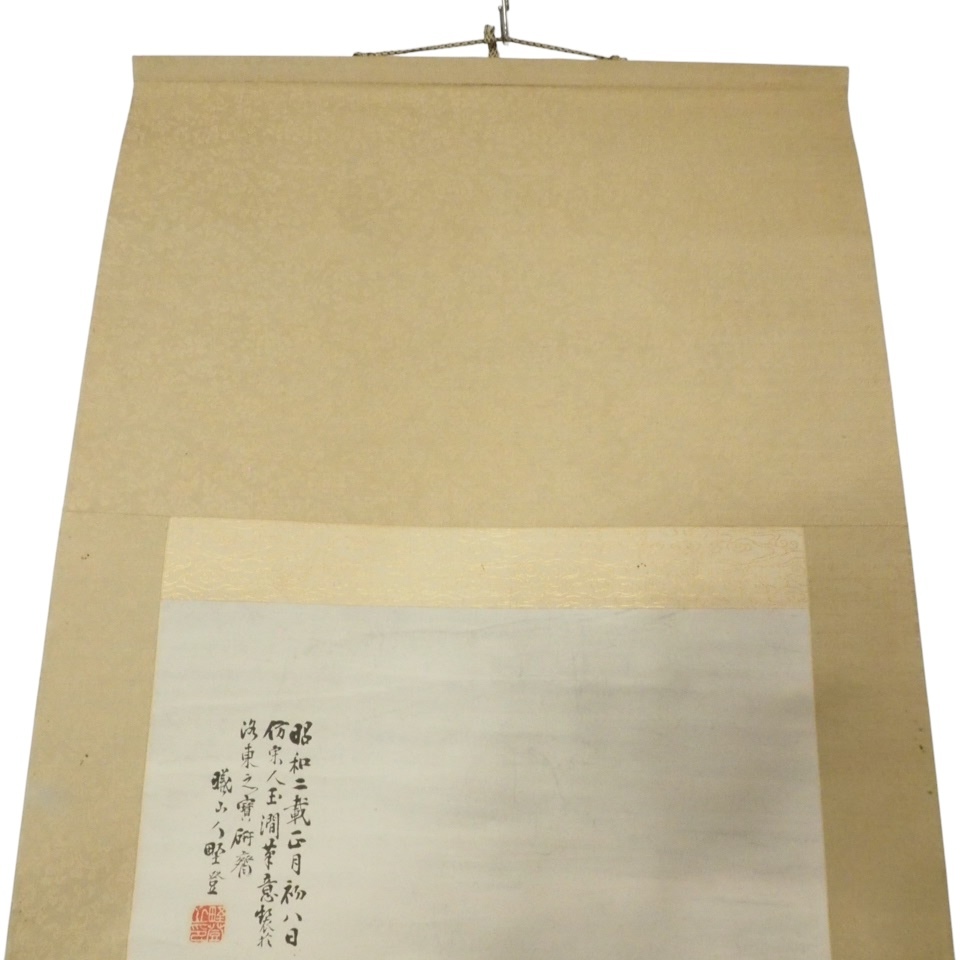 昭和二載正月初八日
仿宋人玉澗筆意製於
洛東之寶研齋
曦山人野登